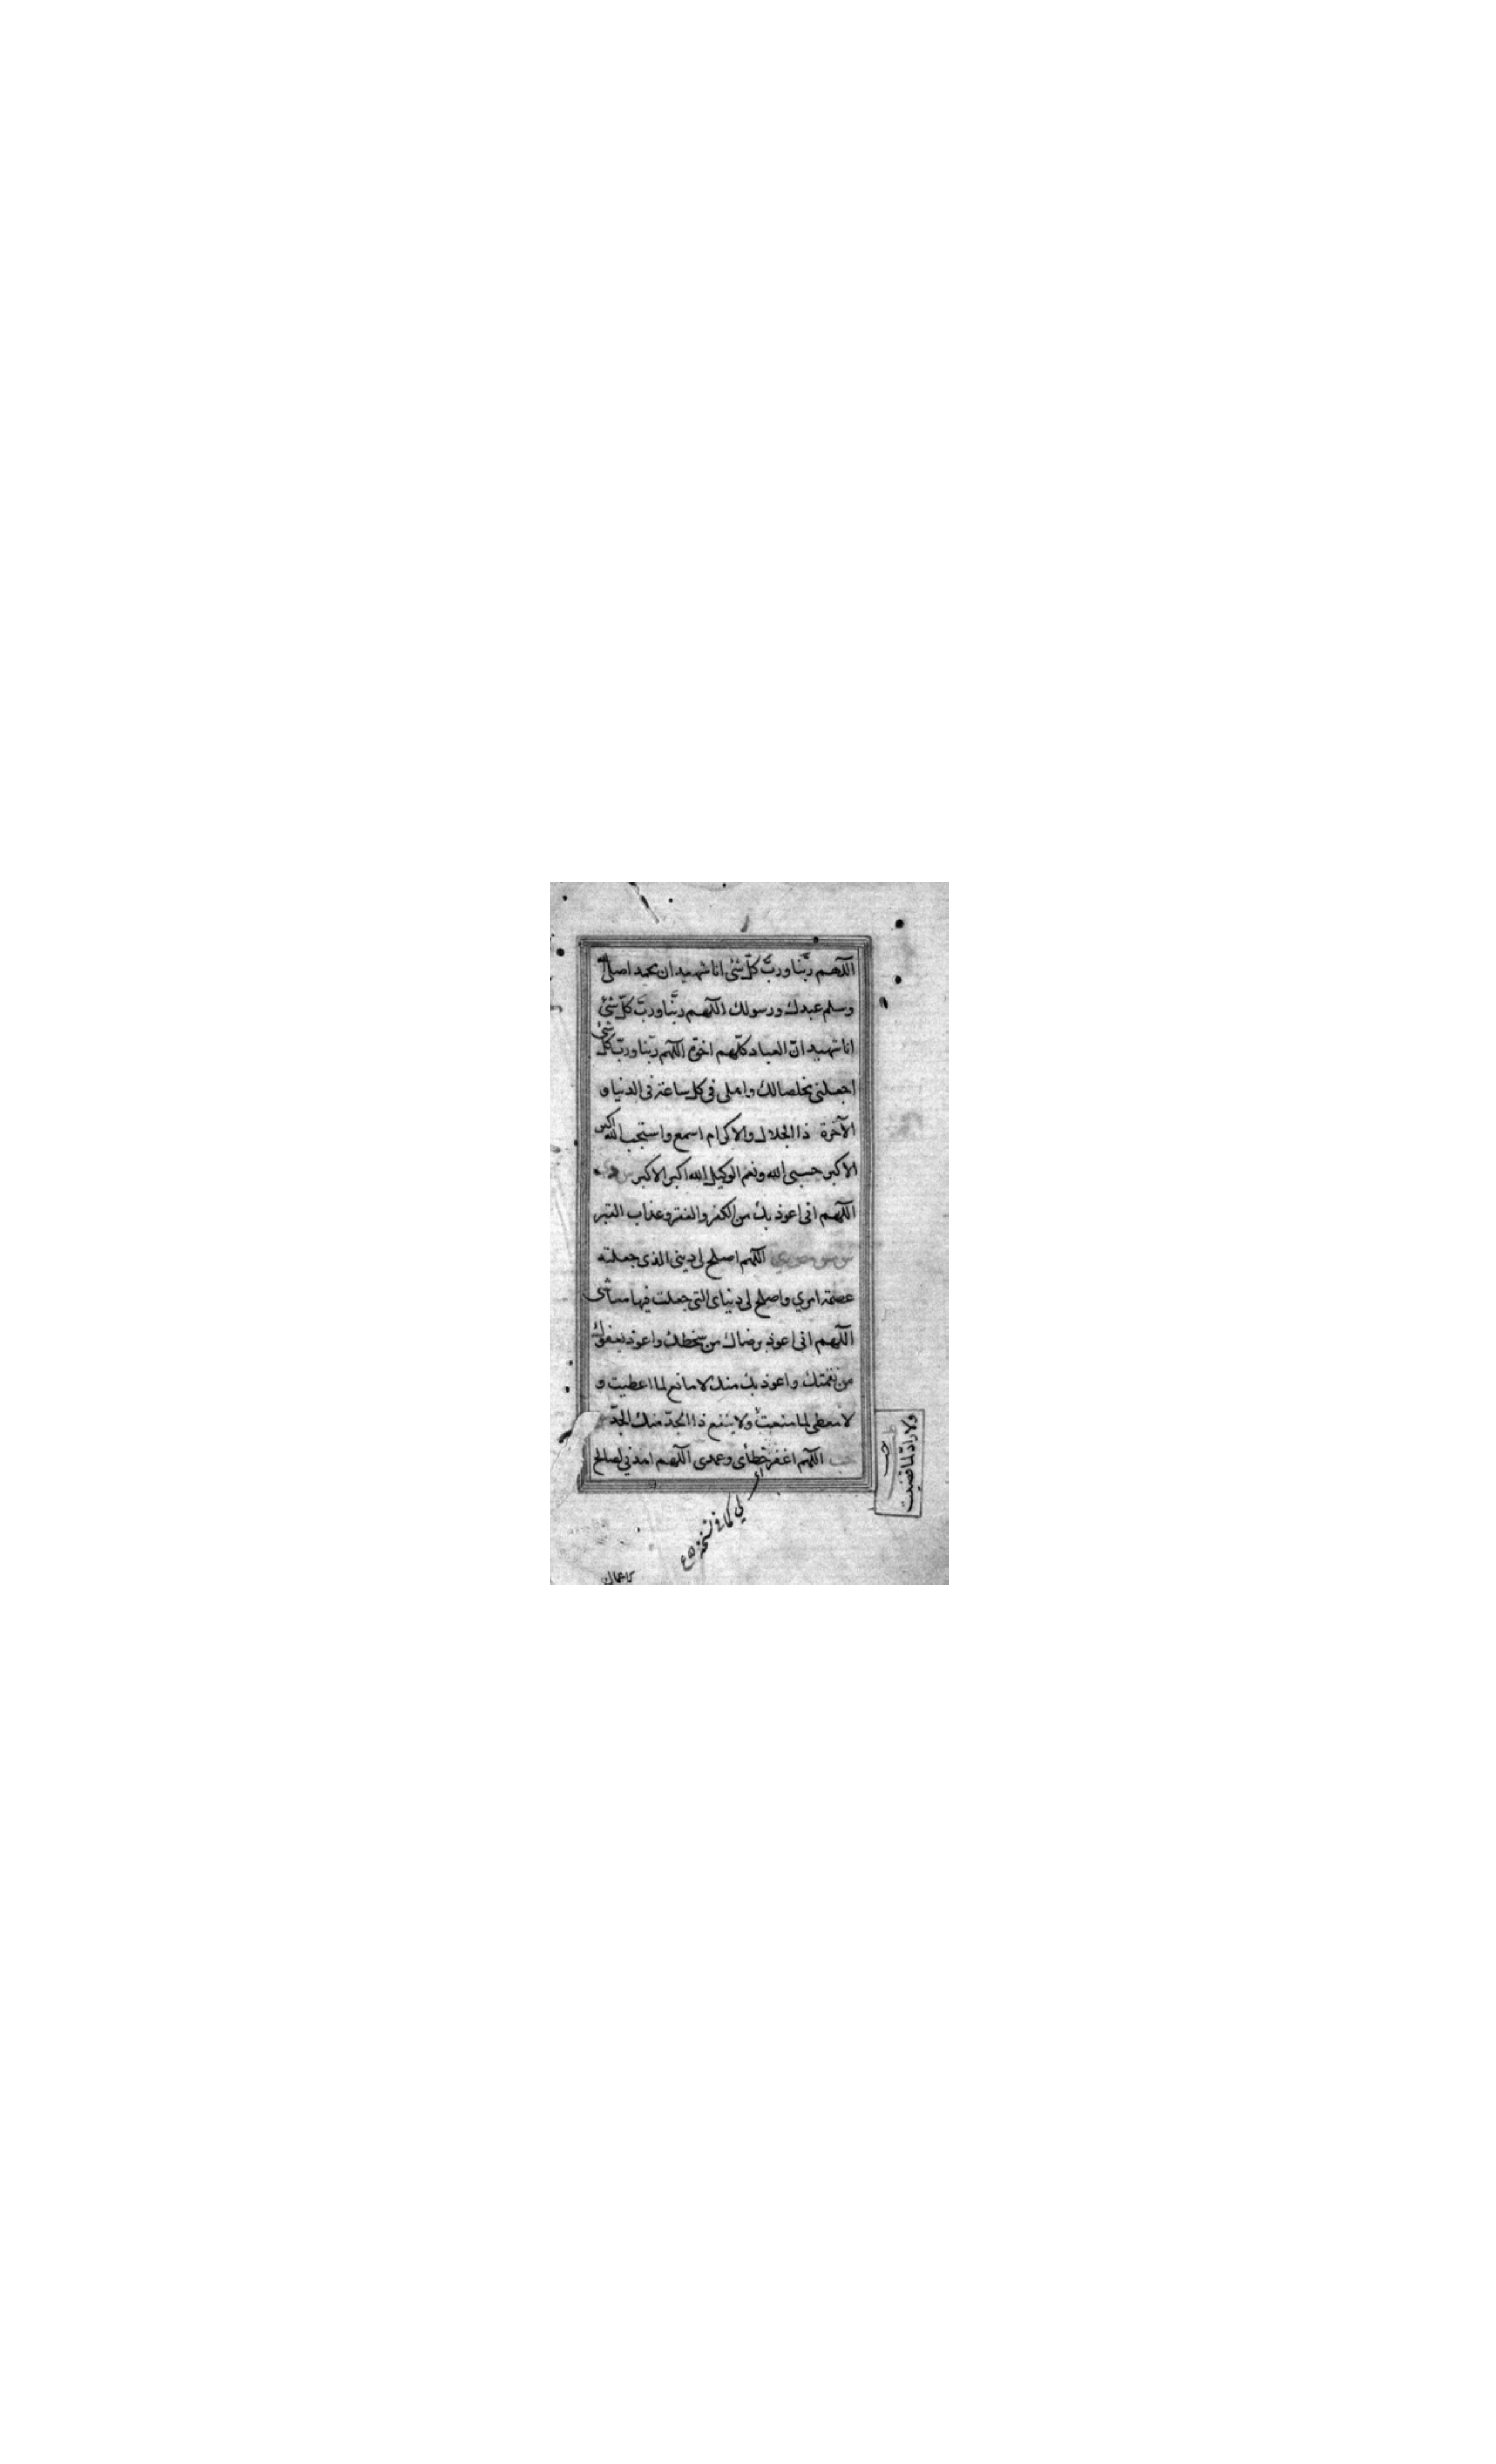 اللهم ربّنا وربّ كلّ شئ انا شهيد ان محمدا صلى الله
وسلم عبدك ورسولك اللهم ربّنا وربّ كلّ شئ
انا شهيد انّ العباد كلّهم اخوة اللهم ربّنا وربّ كلّ شئ
اجعلنى مخلصا لك واهلى فى كل ساعة فى الدنيا و
الآخرة ذا الجلال والاكرام اسمع واستجب الله اكبر
الاكبر حسبى الله ونعم الوكيل الله اكبر الاكبر
اللهم انى اعوذ بك من الكفر والفقر وعذاب القبر
اللهم اصلح لى دينى الذى جعلته
عصمة امري واصلح لى دنياى التى جعلت فيها معاشى
اللهم انى اعوذ برضاك من سخطك واعوذ بعفوك
من نقمتك واعوذ بك منك لا مانع لما اعطيت و
لا معطى لما منعت ولا ينفع ذا الجدّ منك الجدّ
اللهم اغفر خطأى وعمدى اللهم اهدني لصالح
ولا رادّ لما قضيت
حب
لي كما في نسخة